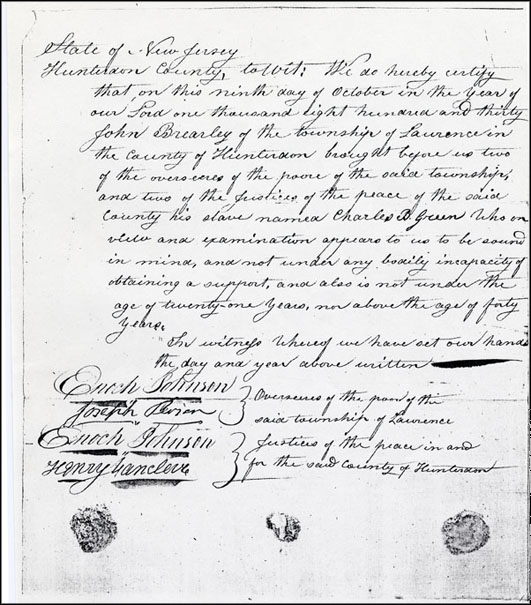 State of New Jersey
Hunterdon County, towit: We do hereby certify
that on this ninth day of October in the year of
our Lord one thousand eight hundred and thirty
John Brearley of the township of Lawrence in
the County of Hunterdon brought before us two
of the overseers of the poore of the said township,
and two of the Justices of the peace of the said
County his slave named Charles B. Green who on
view and examination appears to us to be sound
in mind, and not under any bodily incapacity of
obtaining a support, and also is not under the
age of twenty-one years, nor above the age of forty
years.
In witness whereof we have set our hands
the day and year above written
Enoch Johnson
Joseph
Overseers of the poor of the
said township of Lawrence
Enoch Johnson
Henry Vancleve
Justices of the peace in and
for the said County of Hunterdon